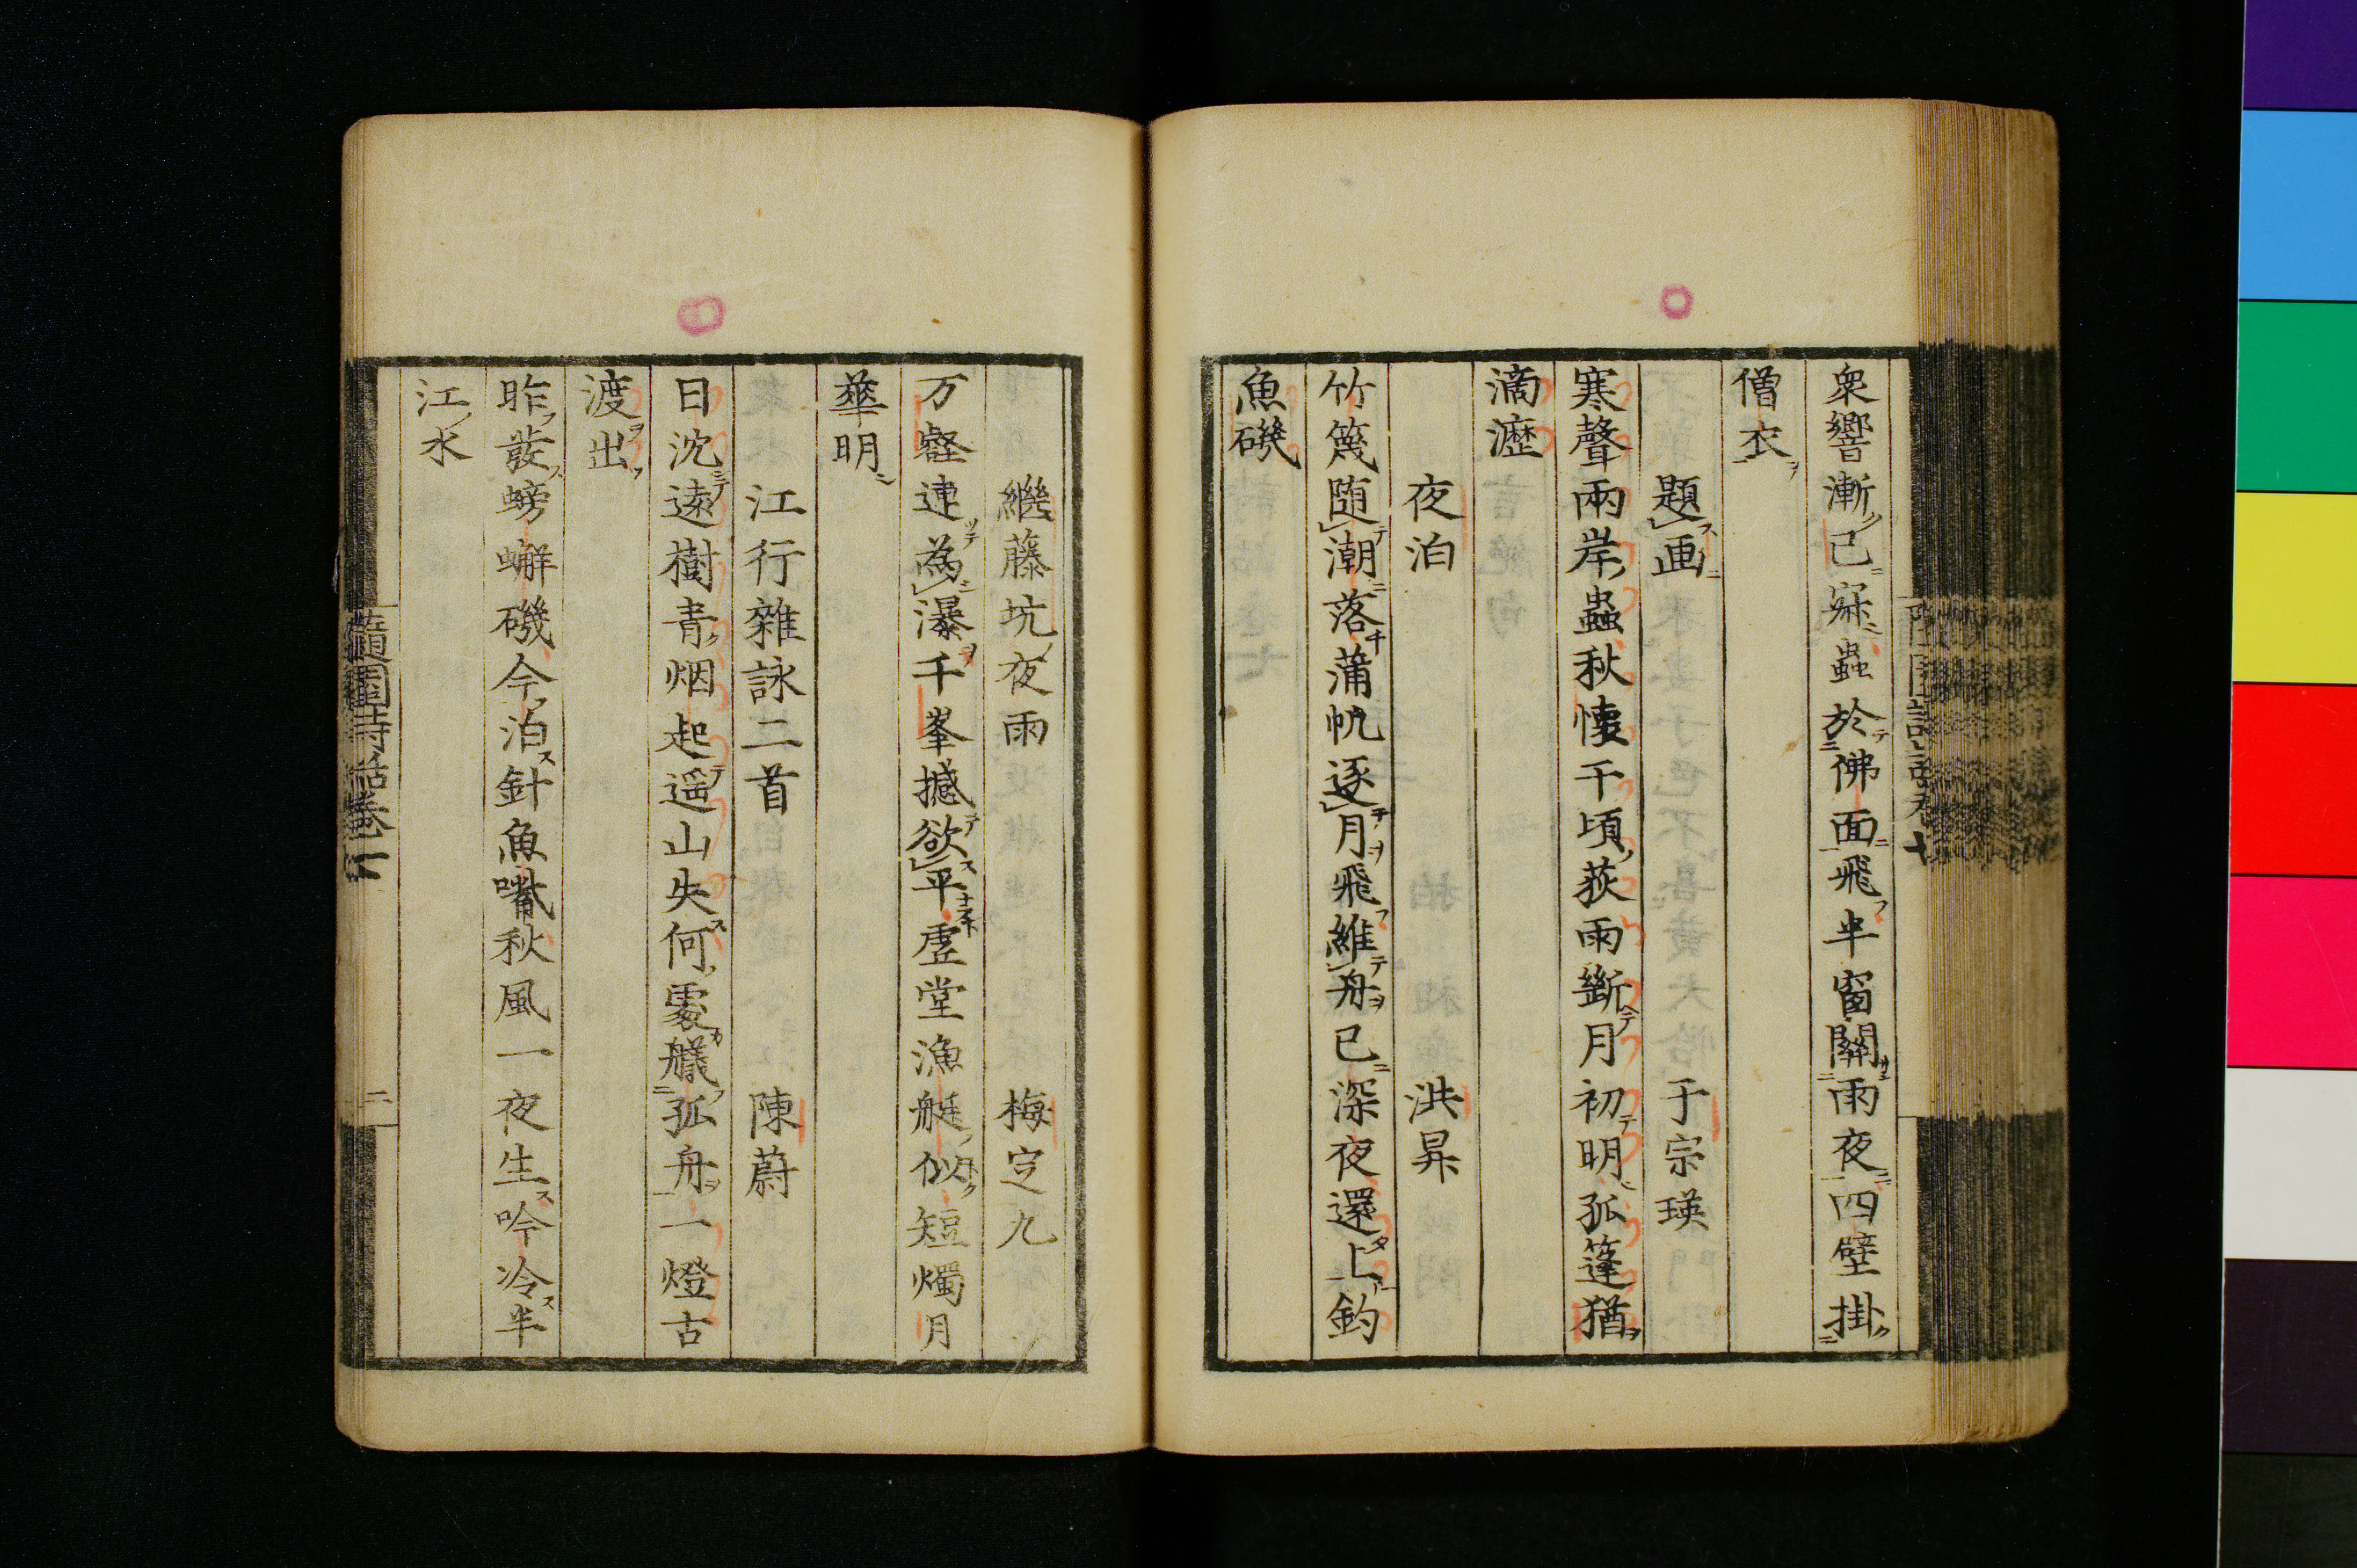 衆響漸已寂蟲於佛面飛半窗關雨夜四壁掛
僧衣
題画　于宗瑛
寒聲兩岸蟲秋懐千頃荻雨斷月初明孤篷猶
滴瀝
夜泊　洪昇
竹篾随潮落蒲帆逐月飛維舟已深夜還上釣
魚磯
繼藤坑夜雨　梅定九
万壑連為瀑千峯撼欲平虛堂漁艇似短燭月
華明
江行雜詠二首　陳蔚
日沈遠樹青烟起遥山失何處艤孤舟一燈古
渡出
昨發螃蠏磯今泊針魚嘴秋風一夜生吟冷半
江水
隨園詩話卷一
二